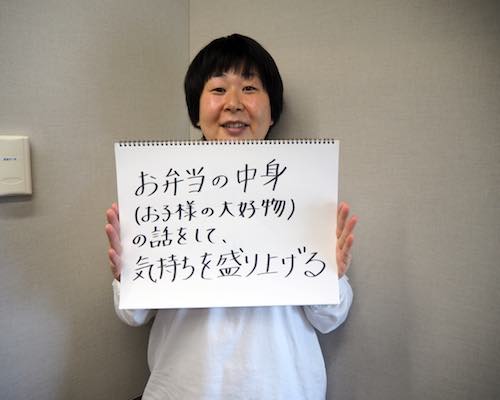 お弁当の中身
(お子様の大好物)
の話をして、
気持ちを盛り上げる